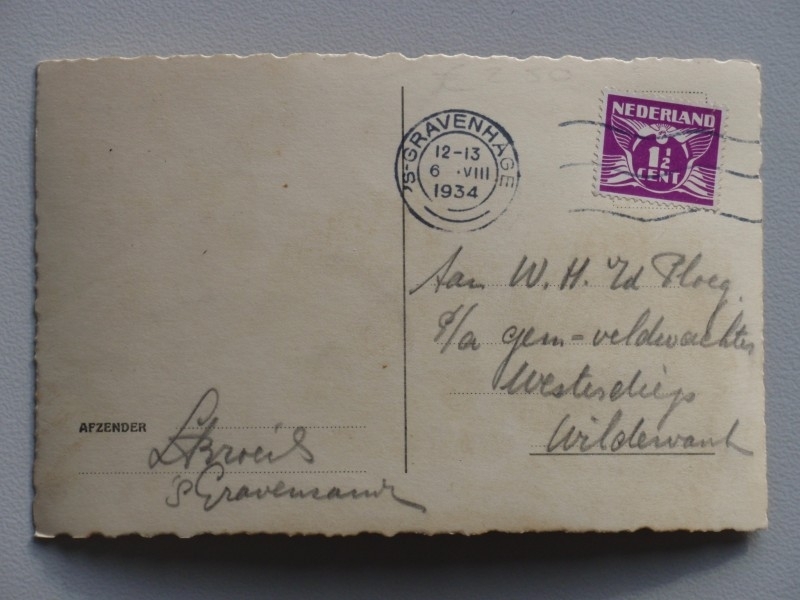 £ 2 50
'S-GRAVENHAGE
12-13
6 .VIII
1934
NEDERLAND
1½
CENT
Aan W. H. v/d Ploeg
p/a gem-veldwachter
Westerdiep
Wildervank
AFZENDER
's Gravensande